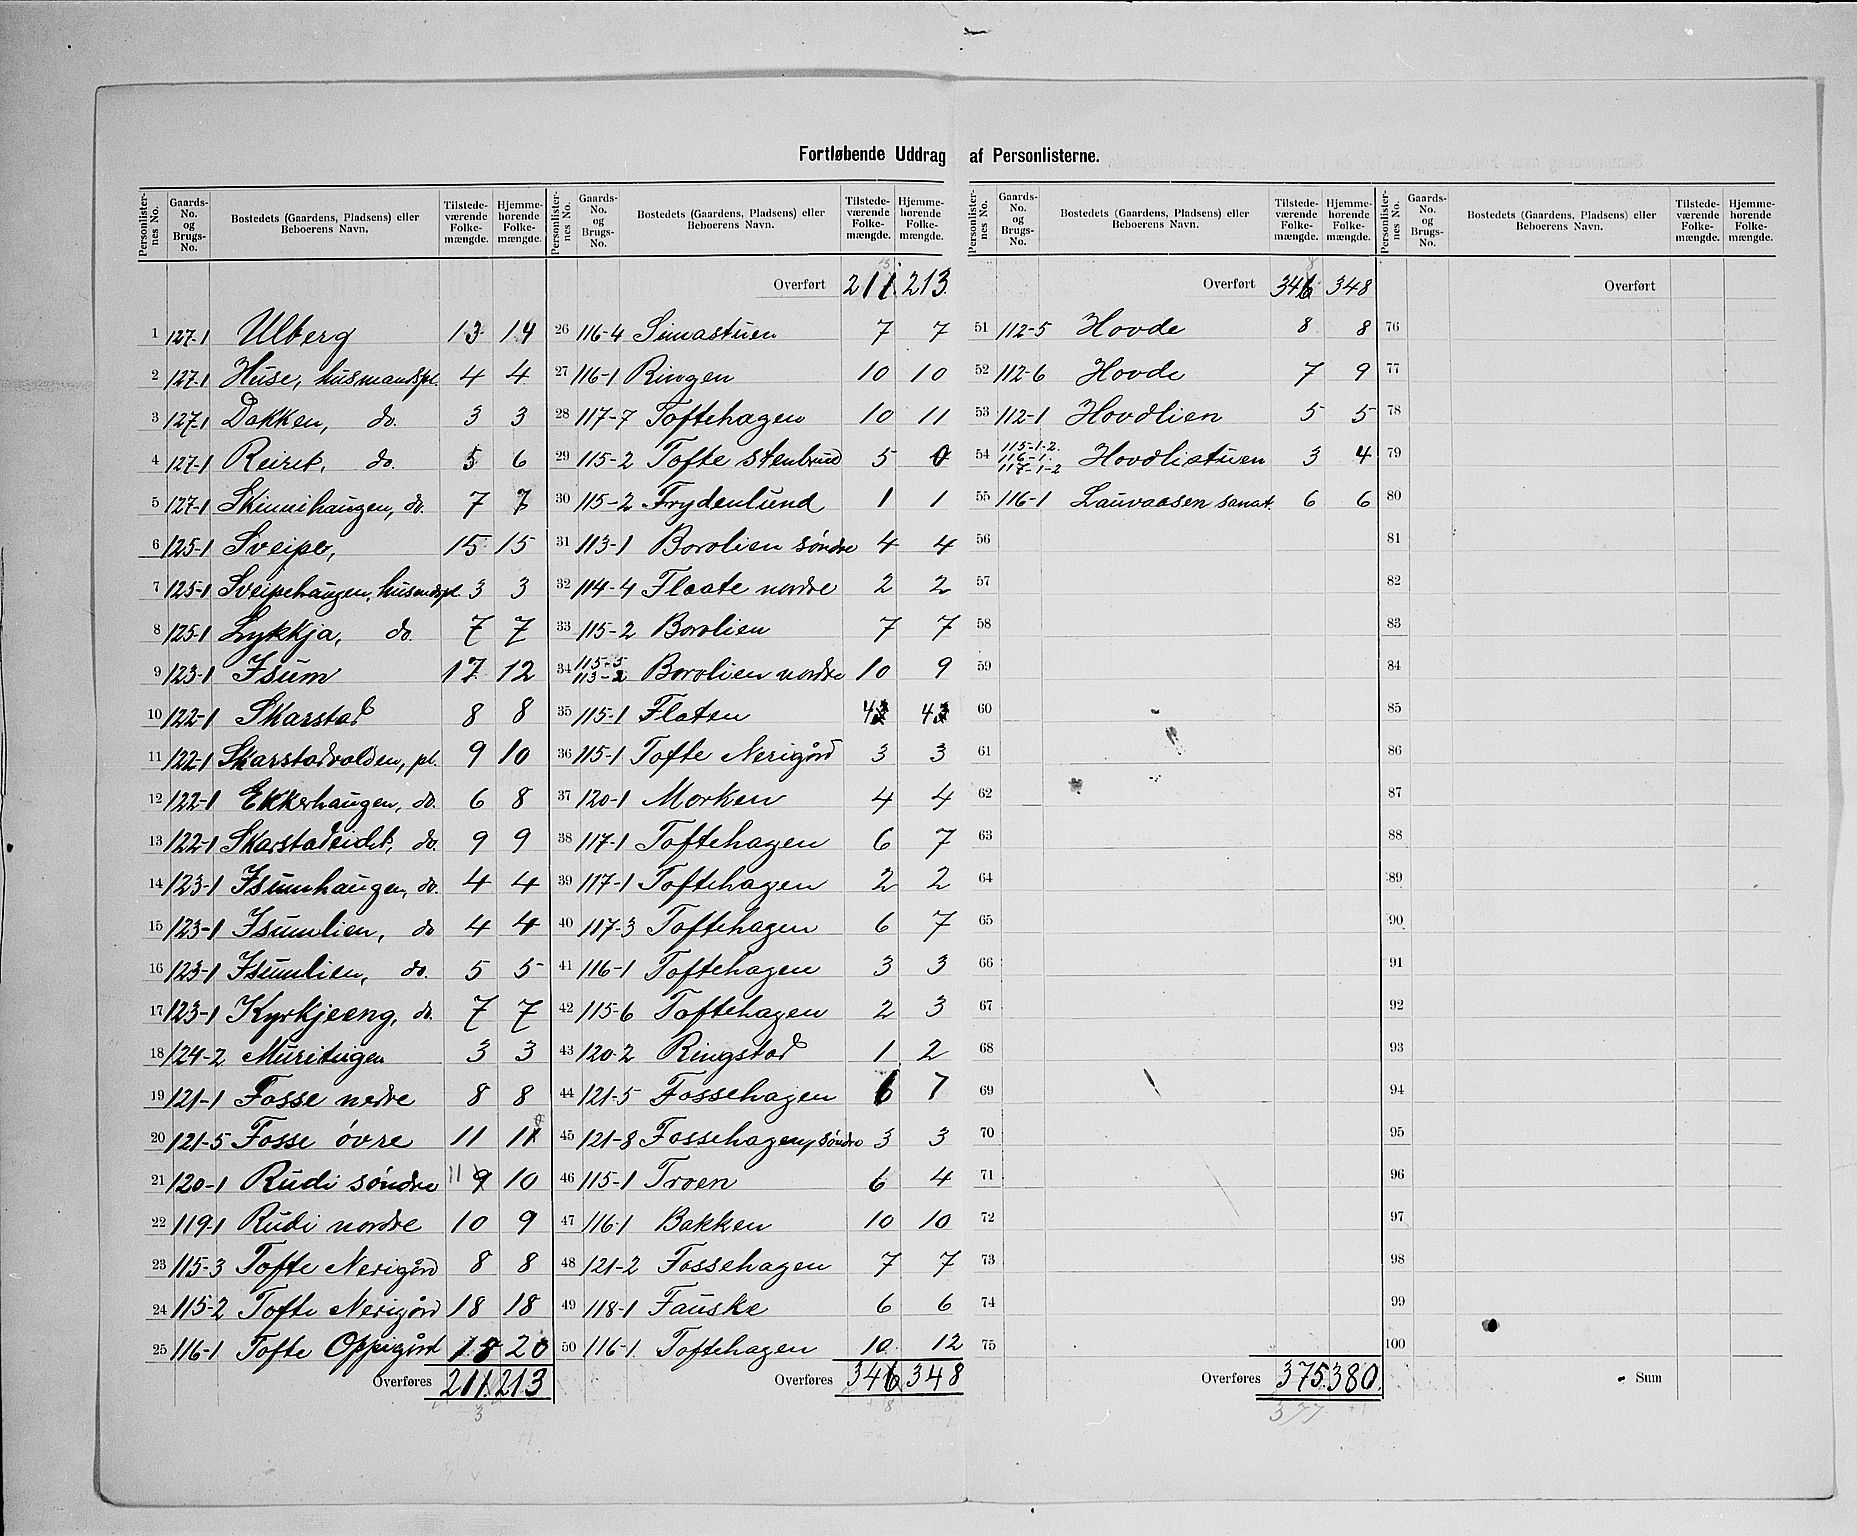 Fortløbende Uddrag af Personlisterne.
Personlisternes No. Gaards-No. og Brugs-No. Bostedets (Gaardens, Pladsens) eller Beboerens Navn. Tilstedeværende Folkemængde. Hjemmehørende Folkemængde.
1 127-1 Ulberg 13 14
2 127-1 Huse, husmandspl. 4 4
3 127-1 Bakken, do. 3 3
4 127-1 do. 5 6
5 127-1 Skinnihaugen, do. 7 7
6 125-1 Sveipe, 15 15
7 125-1 Sveipehaugen, husmdspl 3 3
8 125-1 Lykkja, do. 7 7
9 123-1 Isum 17 12
10 122-1 Skarstad 8 8
11 122-1 Skarstadvolden, pl. 9 10
12 122-1 Ekkerhaugen, do. 6 8
13 122-1 Skarstadeidet, do. 9 9
14 123-1 Isumhaugen, do. 4 4
15 123-1 Isumlien, do 4 4
16 123-1 Isumlien, do. 5 5
17 123-1 Kyrkjeeng, do. 7 7
18 124-2 Muritugen 3 3
19 121-1 Fosse nedre 8 8
20 121-5 Fosse øvre 11 11
21 120-1 Rudi søndre 11 9 10
22 119-1 Rudi nordre 10 9
23 115-3 Tofte Nerigård 8 8
24 115-2 Tofte Nerigård 18 18
25 116-1 Tofte Oppigård 18 20
Overføres 211 213
3
Personlisternes No. Gaards-No. og Brugs-No. Bostedets (Gaardens, Pladsens) eller Beboerens Navn. Tilstedeværende Folkemængde. Hjemmehørende Folkemængde.
13
Overført 211 213
26 116-4 Simastuen 7 7
27 116-1 Ringen 10 10
28 117-7 Toftehagen 10 11
29 115-2 Tofte stenbrud 5 0
30 115-2 Frydenlund 1 1
31 113-1 Borolien søndre 4 4
32 114-4 Flaate nordre 2 2
33 115-2 Borolien 7 7
34 115-5 113-2 Borolien nordre 10 9
35 115-1 Flaten 43 43
36 115-1 Tofte Nerigård 3 3
37 120-1 Morken 4 4
38 117-1 Toftehagen 6 7
39 117-1 Toftehagen 2 2
40 117-3 Toftehagen 6 7
41 116-1 Toftehagen 3 3
42 115-6 Toftehagen 2 3
43 120-2 Ringstad 1 2
44 121-5 Fossehagen 6 7
45 121-8 Fossehagen, søndre 3 3
46 115-1 Troen 6 4
47 116-1 Bakken 10 10
48 121-2 Fossehagen 7 7
49 118-1 Fauske 6 6
50 116-1 Toftehagen 10 12
Overføres 346 348
8
Personlisternes No. Gaards-No. og Brugs-No. Bostedets (Gaardens, Pladsens) eller Beboerens Navn. Tilstedeværende Folkemængde. Hjemmehørende Folkemængde.
8
Overført 346 348
51 112-5 Hovde 8 8
52 112-6 Hovde 7 9
53 112-1 Hovdlien 5 5
54 115-1-2. 116-1. 117-1-2 Hovdlistuen 3 4
55 116-1 Lauvaasen sanat. 6 6
56
57
58
59
60
61
62
63
64
65
66
67
68
69
70
71
72
73
74
75
Overføres 375 380
377
Personlisternes No. Gaards-No. og Brugs-No. Bostedets (Gaardens, Pladsens) eller Beboerens Navn. Tilstedeværende Folkemængde. Hjemmehørende Folkemængde.
Overført
76
77
78
79
80
81
82
83
84
85
86
87
88
89
90
91
92
93
94
95
96
97
98
99
100
Sum